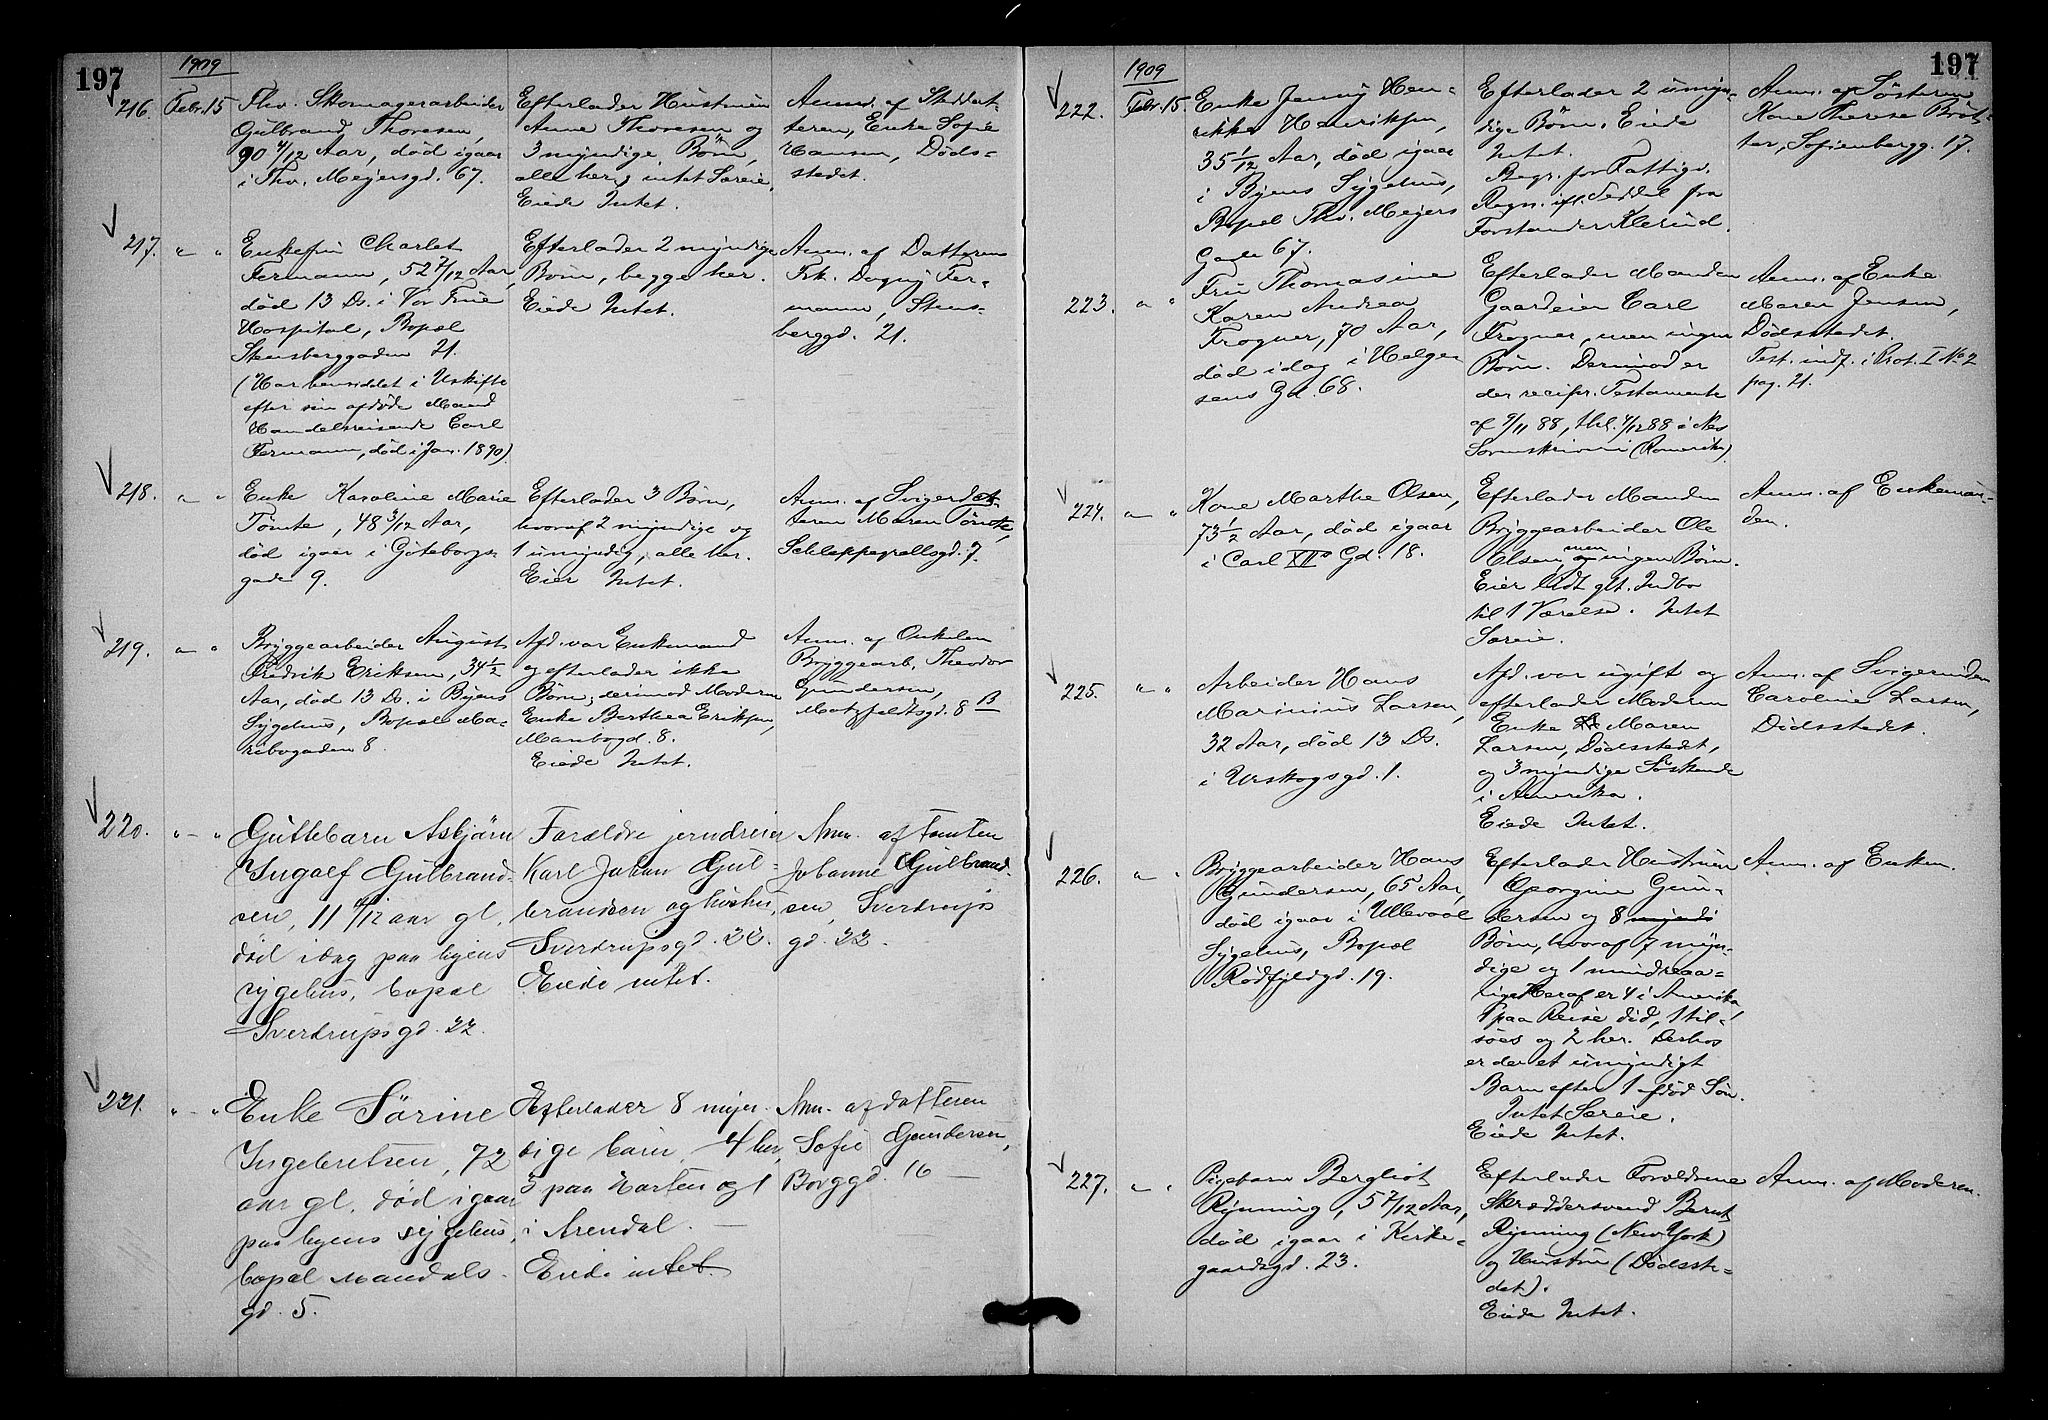 197
1909
216. Febr. 15
Fhv. Skomagerarbeider
Gulbrand Thoresen,
90 4/12 Aar, død igaar
i Thv. Meyersgd. 67.
Efterlader Hustruen
Anne Thoresen og
3 myndige Børn,
alle her, intet Særeie,
Eiede Intet.
Anm. af Steddat-
teren, Enke Sofie
Hansen, Døds-
stedet.
217. " - "
Enkefru Charlet
Fermann, 52 7/12 Aar,
død 13 Ds. i Vor Frue
Hospital, Bopæl
Stensberggaden 21.
(Har hensiddet i Uskifte
efter sin afdøde Mand
Handelsreisende Carl
Fermann, død i Jan. 1890).
Efterlader 2 myndige
Børn, begge her.
Eiede Intet.
Anm. af Datteren
Frk. Dagny Fer-
mann, Stens-
berggd. 21.
218. " - "
Enke Karoline Marie
Tömte, 48 3/12 Aar,
død igaar i Göteborgs-
gade 9.
Efterlader 3 Børn,
hvoraf 2 myndige og
1 umyndig, alle her.
Eier Intet.
Anm. af Svigerdat-
teren Maren Tömte,
Schleppegrellsgd. 7.
219. " - "
Bryggearbeider August
Fredrik Eriksen, 34 1/2
Aar, død 13 Ds. i Byens
Sygehus, Bopæl Ma-
ribogaden 8.
Afd. var Enkemand
og efterlader ikke
Børn; derimod Moderen
Enke Berthea Eriksen,
Maribogd. 8.
Eiede Intet.
Anm. af Onkelen
Bryggearb. Theodor
Gundersen,
Motzfeldtsgd. 8 B
220. " - "
Guttebarn Asbjörn
Ingolf Gulbrand-
sen, 11 4/12 aar gl.
död idag paa byens
sygehus, bopæl
Sverdrupsgd. 22.
Forældre jerndreier
Karl Johan Gul-
brandsen og hustru,
Sverdrupsgd. 22.
Eiede intet.
Anm. af tanten
Johanne Gulbrand-
sen, Sverdrups
gd. 22.
221. " - "
Enke Sörine
Ingebretsen, 72
aar gl. död igaar
paa byens sygehus,
bopæl Mandals-
gd. 5.
Efterlader 8 myn-
dige börn, 4 her,
3 paa Horten og 1
i Arendal. —
Eiede intet.
Anm. af datteren
Sofie Gundersen,
Borggd. 16 —
197
1909
222. Febr. 15.
Enke Jenny Hen-
rikke Henriksen,
35 1/12 Aar, død igaar
i Byens Sygehus,
Bopæl Thv. Meyers
Gade 67.
Efterlader 2 umyn-
dige Børn. Eiede
Intet.
Begr. for Fattigv.
Regn. ifl. Seddel fra
Forstander Klerud.
Anm. af Søsteren
Kone Therese Brat-
ter, Sofienbergg. 17.
223. " "
Fru Thomasine
Karen Andrea
Frogner, 70 Aar,
død idag i Helge-
sens Gd. 68.
Efterlader Manden
Gaardeier Carl
Frogner, men ingen
Børn. Derimod er
der recipr. Testamente
af 9/11 88, thl. 4/12 88 i Nes
Sorenskriveri (Romerike).
Anm. af Enke
Maren Jensen,
Dødsstedet.
Test. indf. i Prot. I No 2
pag. 21.
224. " - "
Kone Marthe Olsen,
73 1/2 Aar, død igaar
i Carl XIIs Gd. 18.
Efterlader Manden
Bryggearbeider Ole
Olsen, men ingen Børn.
Eier lidt glt. Indbo
til 1 Værelse. Intet
Særeie.
Anm. af Enkeman-
den.
225. " - "
Arbeider Hans
Marinius Larsen,
32 Aar, død 13 Ds.
i Urskogsgd. 1.
Afd. var ugift og
efterlader Moderen
Enke Maren
Larsen, Dødsstedet,
og 3 myndige Søskende
i Amerika.
Eiede Intet.
Anm. af Svigerinden
Caroline Larsen,
Dødsstedet.
226. " - "
Bryggearbeider Hans
Gundersen, 65 Aar,
død igaar i Ullevaal
Sygehus, Bopæl
Rødfyldgd. 19.
Efterlader Hustruen
Georgine Gun-
dersen og 8 myndi
Børn, hvoraf 7 myn-
dige og 1 mindreaa-
lig. Heraf er 4 i Amerika,
1 paa Reise did, 1 til-
søes og 2 her. Deshos
er der et umyndigt
Barn efter 1 afdød Søn.
Intet Særeie.
Eiede Intet.
Anm. af Enken.
227. " - "
Pigebarn Bergliot
Rynning, 5 7/12 Aar,
død igaar i Kirke-
gaardsgd. 23.
Efterlader Forældrene
Skræddersvend Bernt
Rynning (New York)
og Hustru (Dødsste-
det).
Eiede Intet.
Anm. af Moderen.